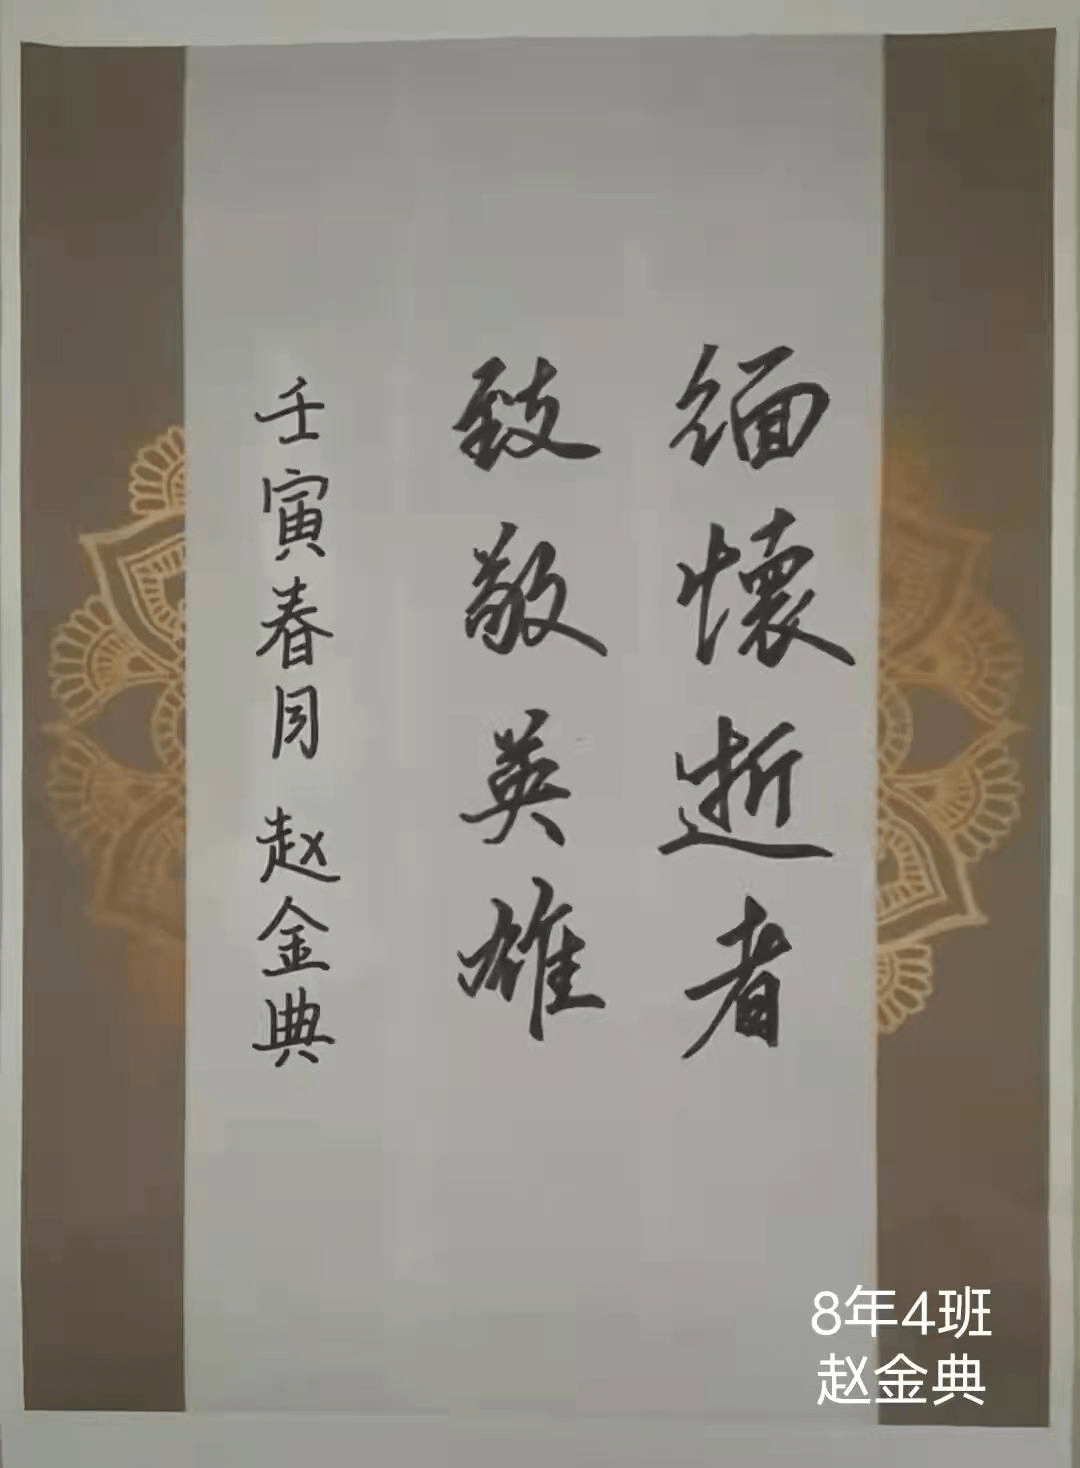 缅懷逝者
致敬英雄
壬寅春月 赵金典
8年4班
赵金典